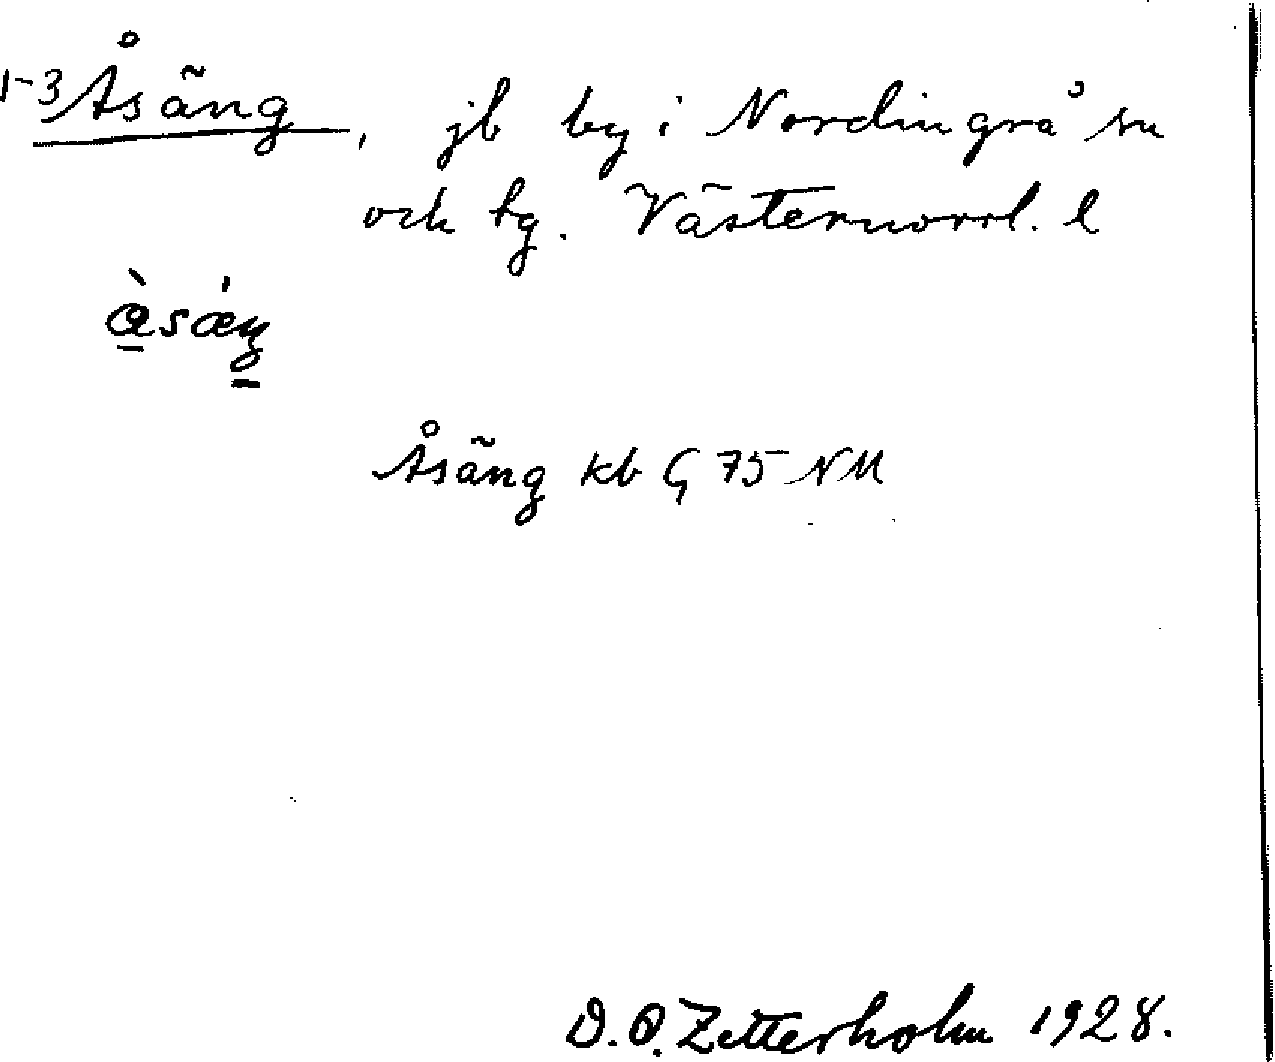 1-3 Åsäng, jb by i Nordingrå sn
och tg. Västernorrl. l
Åsäng kb G 75 NM
D. O. Zetterholm 1928.